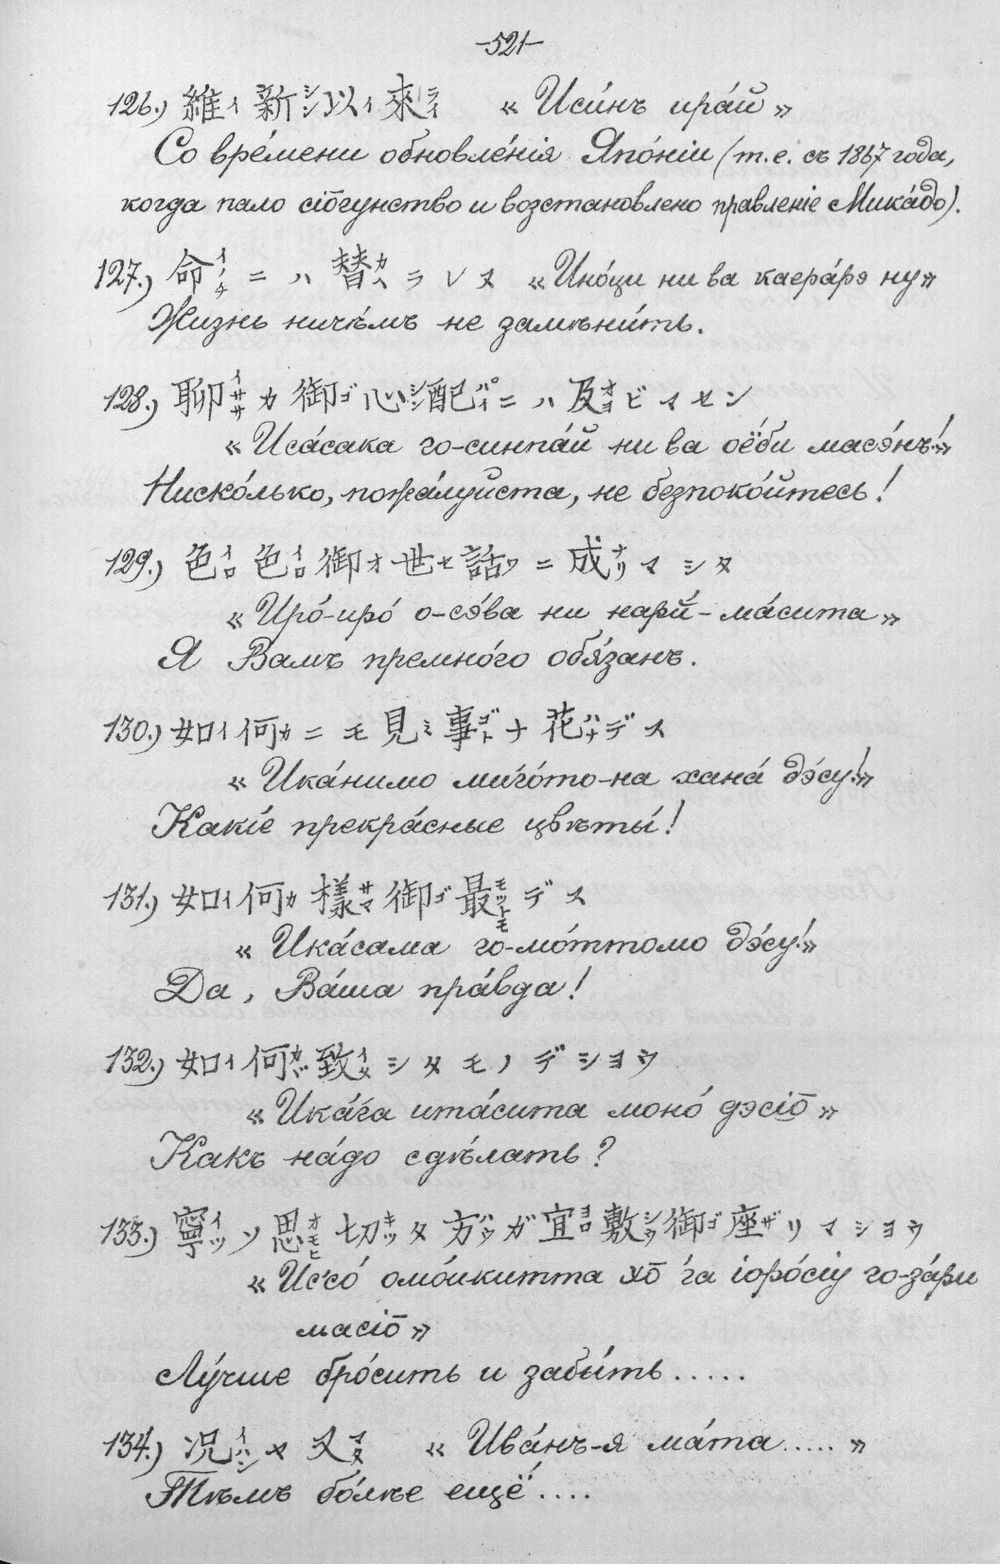 -521-
126.) 維イ新シン以イ來ライ «Иси́нъ ира́й»
Со вре́мени обновле́нія Япо́ніи (т.е. съ 1867 года,
когда пало сіо̄гунство и возстановлено правленіе Мика́до).
127.) 命イノチニハ替カヘラレヌ «Ино́ци ни ва каера́рэ ну»
Жизнь ничѣмъ не замѣни́ть.
128.) 聊イササカ御ゴ心シン配パイニハ及オヨビマセン
«Иса́сака го-синпа́й ни ва оё́би масэ́нъ!»
Ниско́лько, пожа́луйста, не безпоко́йтесь!
129.) 色イロ色イロ御オ世セ話ワニ成ナリマシタ
«Иро́-иро́ о-сэ́ва ни нари́-ма́сита»
Я Вамъ премно́го обя́занъ.
130.) 如イ何カニモ見ミ事ゴトナ花ハナデス
«Ика́нимо миго́то-на хана́ дэ́су!»
Какі́е прекра́сные цвѣты́!
131.) 如イ何カ樣サマ御ゴ最モットモデス
«Ика́сама го-мо́ттомо дэ́су!»
Да, Ва́ша пра́вда!
132.) 如イ何カガ致イタシタモノデショウ
«Ика́га ита́сита моно́ дэсіо̄»
Какъ на́до сдѣ́лать?
133.) 寧イッソ思オモヒ切キッタ方ハウガ宜ヨロ敷シウ御ゴ座ザリマショウ
«Иссо́ омо́икитта хо̄ га іоро́сіу го-за́ри
масіо̄»
Лу́чше бро́сить и забы́ть.....
134.) 况イハンヤ又マタ «Ива́нъ-я ма́та.....»
Тѣмъ бо́лѣе ещё....